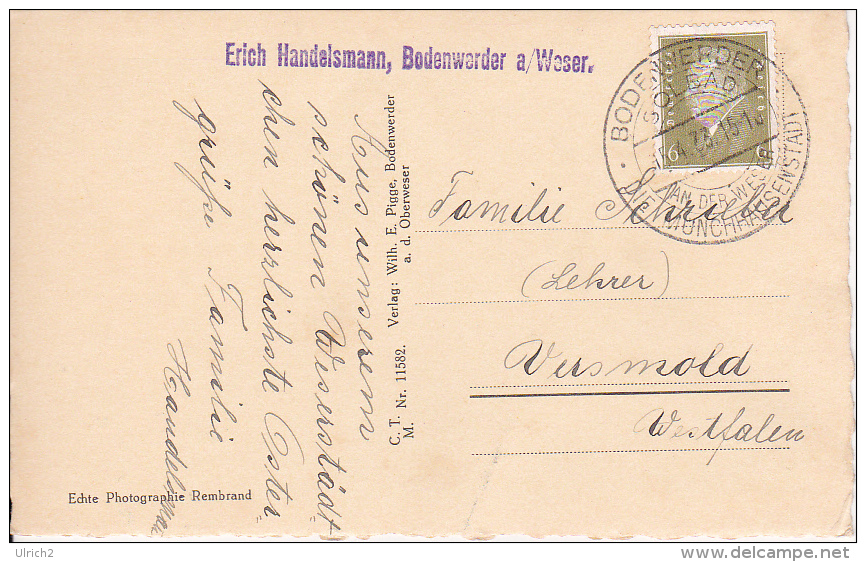 Erich Handelsmann, Bodenwerder a/Weser.
BODENWERDER
SOLBAD
AN DER WESER
DIE MÜNCHHAUSENSTADT
6
Familie Schrieber
(Lehrer)
Versmold
Westfalen
Verlag: Wilh. E. Pigge, Bodenwerder
a. d. Oberweser
C. T. Nr. 11582.
M.
Aus unserem
schönen Weserstädt
chen herzlichste Oster
grüße Familie
Handelsmann
Echte Photographie Rembrand
Ulrich2
www.delcampe.net